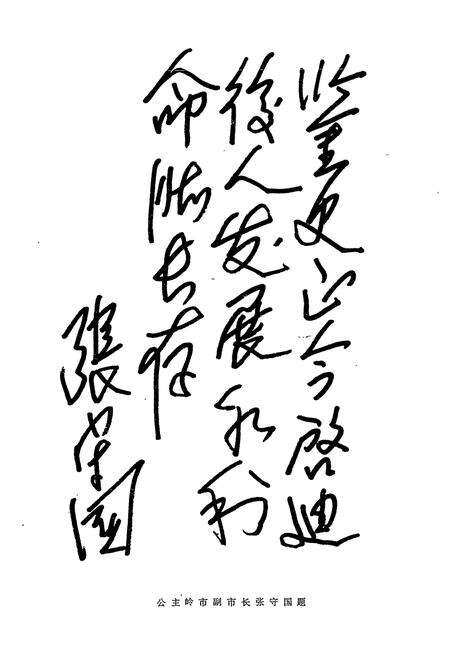 鉴史证今啓迪
後人发展水利
命脉长存
張守國
公主岭市副市长张守国题